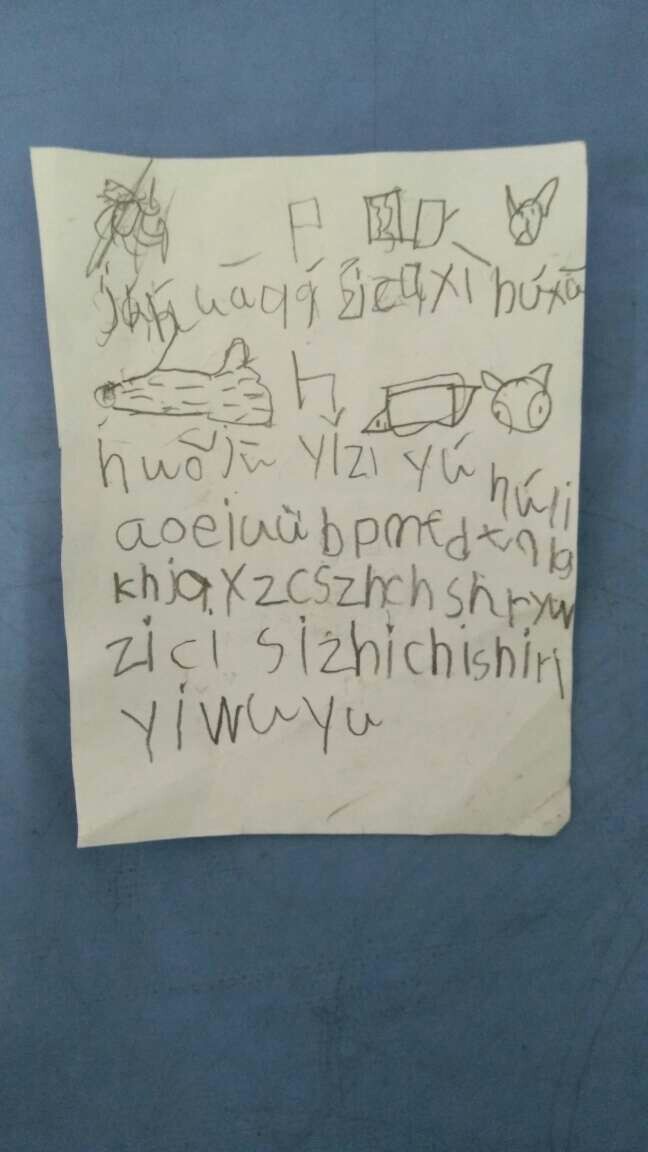 húxū
huǒjū yǐzi yú húli
aoeiuü bpmfdtnlg
khjqxzcszhchshryw
zicisizhichishiri
yiwuyu